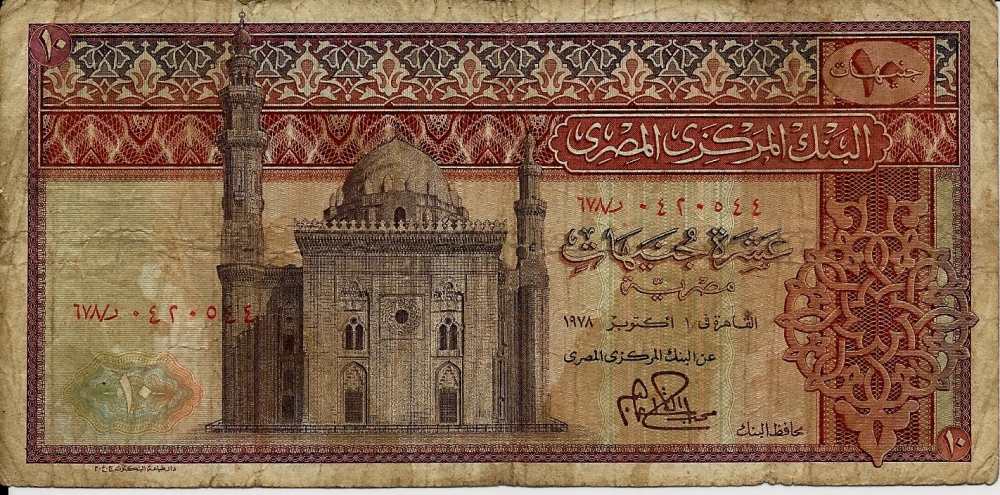 ١٠
١٠ جنيهات
البنك المركزى المصرى
٦٧٨/د ٠٤٢٠٥٤٤
عشرة جنيهات
مصرية
القاهرة فى ١ اكتوبر ١٩٧٨
عن البنك المركزى المصرى
محافظ البنك
٦٧٨/د ٠٤٢٠٥٤٤
١٠
١٠
دار طباعة البنكنوت ج٠ع٠م